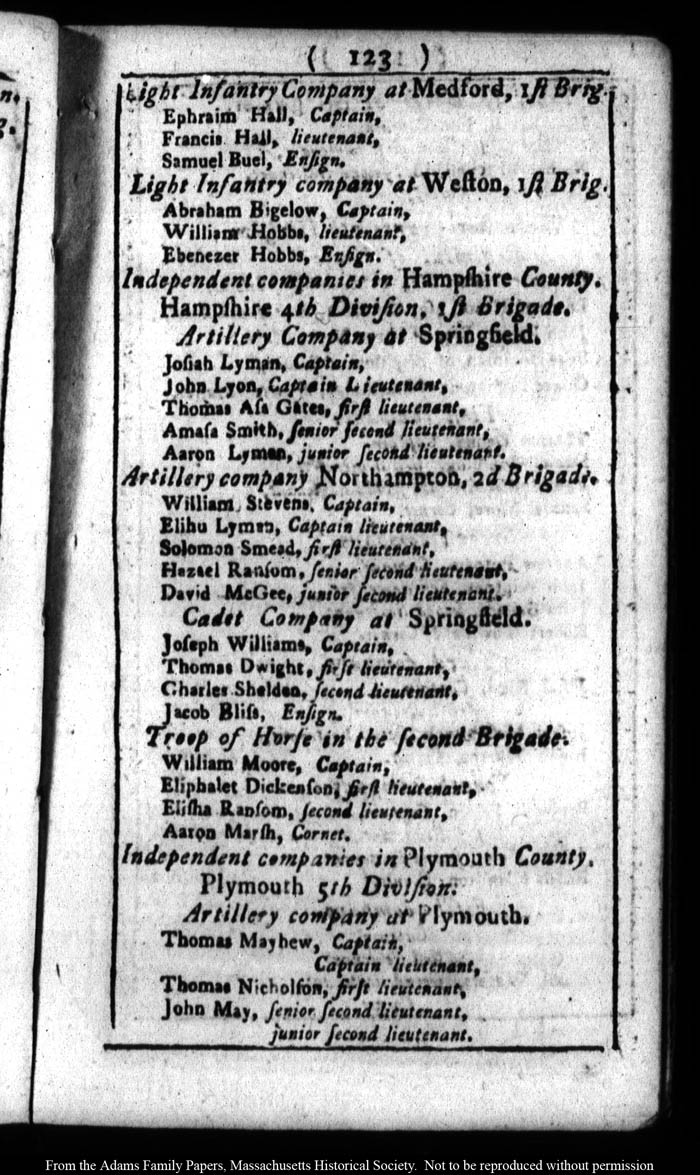 n.
g.
( 123 )
Light Infantry Company at Medford, 1ſt Brig.
Ephraim Hall, Captain,
Francis Hall, lieutenant,
Samuel Buel, Enſign.
Light Infantry company at Weſton, 1ſt Brig.
Abraham Bigelow, Captain,
William Hobbs, lieutenant,
Ebenezer Hobbs, Enſign.
Independent companies in Hampſhire County.
Hampſhire 4th Diviſion, 1ſt Brigade.
Artillery Company at Springfield.
Joſiah Lyman, Captain,
John Lyon, Captain Lieutenant,
Thomas Aſa Gates, firſt lieutenant,
Amaſa Smith, ſenior ſecond lieutenant,
Aaron Lyman, junior ſecond lieutenant.
Artillery company Northampton, 2d Brigade.
William Stevens, Captain,
Elihu Lyman, Captain lieutenant,
Solomon Smead, firſt lieutenant,
Hazael Ranſom, ſenior ſecond lieutenant,
David McGee, junior ſecond lieutenant.
Cadet Company at Springfield.
Joſeph Williams, Captain,
Thomas Dwight, firſt lieutenant,
Charles Shelden, ſecond lieutenant,
Jacob Bliſs, Enſign.
Troop of Horſe in the ſecond Brigade.
William Moore, Captain,
Eliphalet Dickenſon, firſt lieutenant,
Eliſha Ranſom, ſecond lieutenant,
Aaron Marſh, Cornet.
Independent companies in Plymouth County.
Plymouth 5th Diviſion.
Artillery company at Plymouth.
Thomas Mayhew, Captain,
Captain lieutenant,
Thomas Nicholſon, firſt lieutenant,
John May, ſenior ſecond lieutenant,
junior ſecond lieutenant.
From the Adams Family Papers, Massachusetts Historical Society. Not to be reproduced without permission